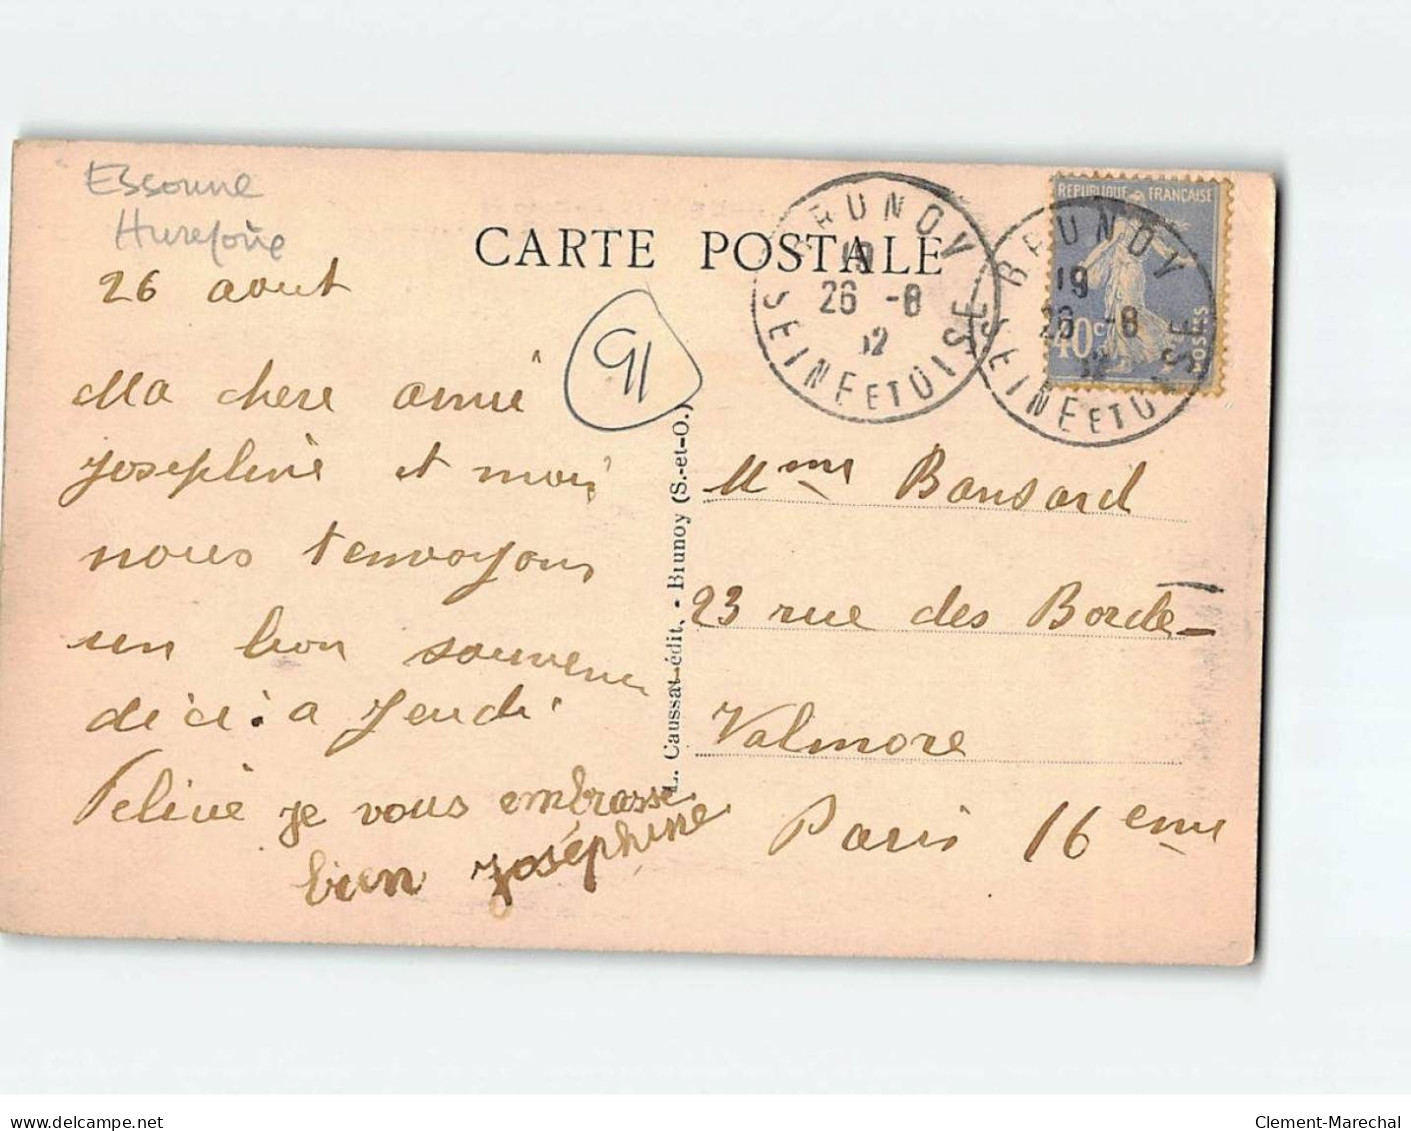 Essonne
Hurepoix
26 aout
CARTE POSTALE
91
BRUNOY
19
26 -8
32
SEINE ET OISE
BRUNOY
19
26 -8
32
SEINE ET OISE
REPUBLIQUE FRANÇAISE
40c
POSTES
Ma chere amie
Josephine et moi
nous t envoyons
un bon souvenir
d'ici. a Jeudi
Feline je vous embrasse
bien Joséphine
L. Caussat édit. - Brunoy (S.-et-O.)
Mme Bansard
23 rue des Borde-
Valmore
Paris 16 eme
delcampe.net
Clement-Marechal